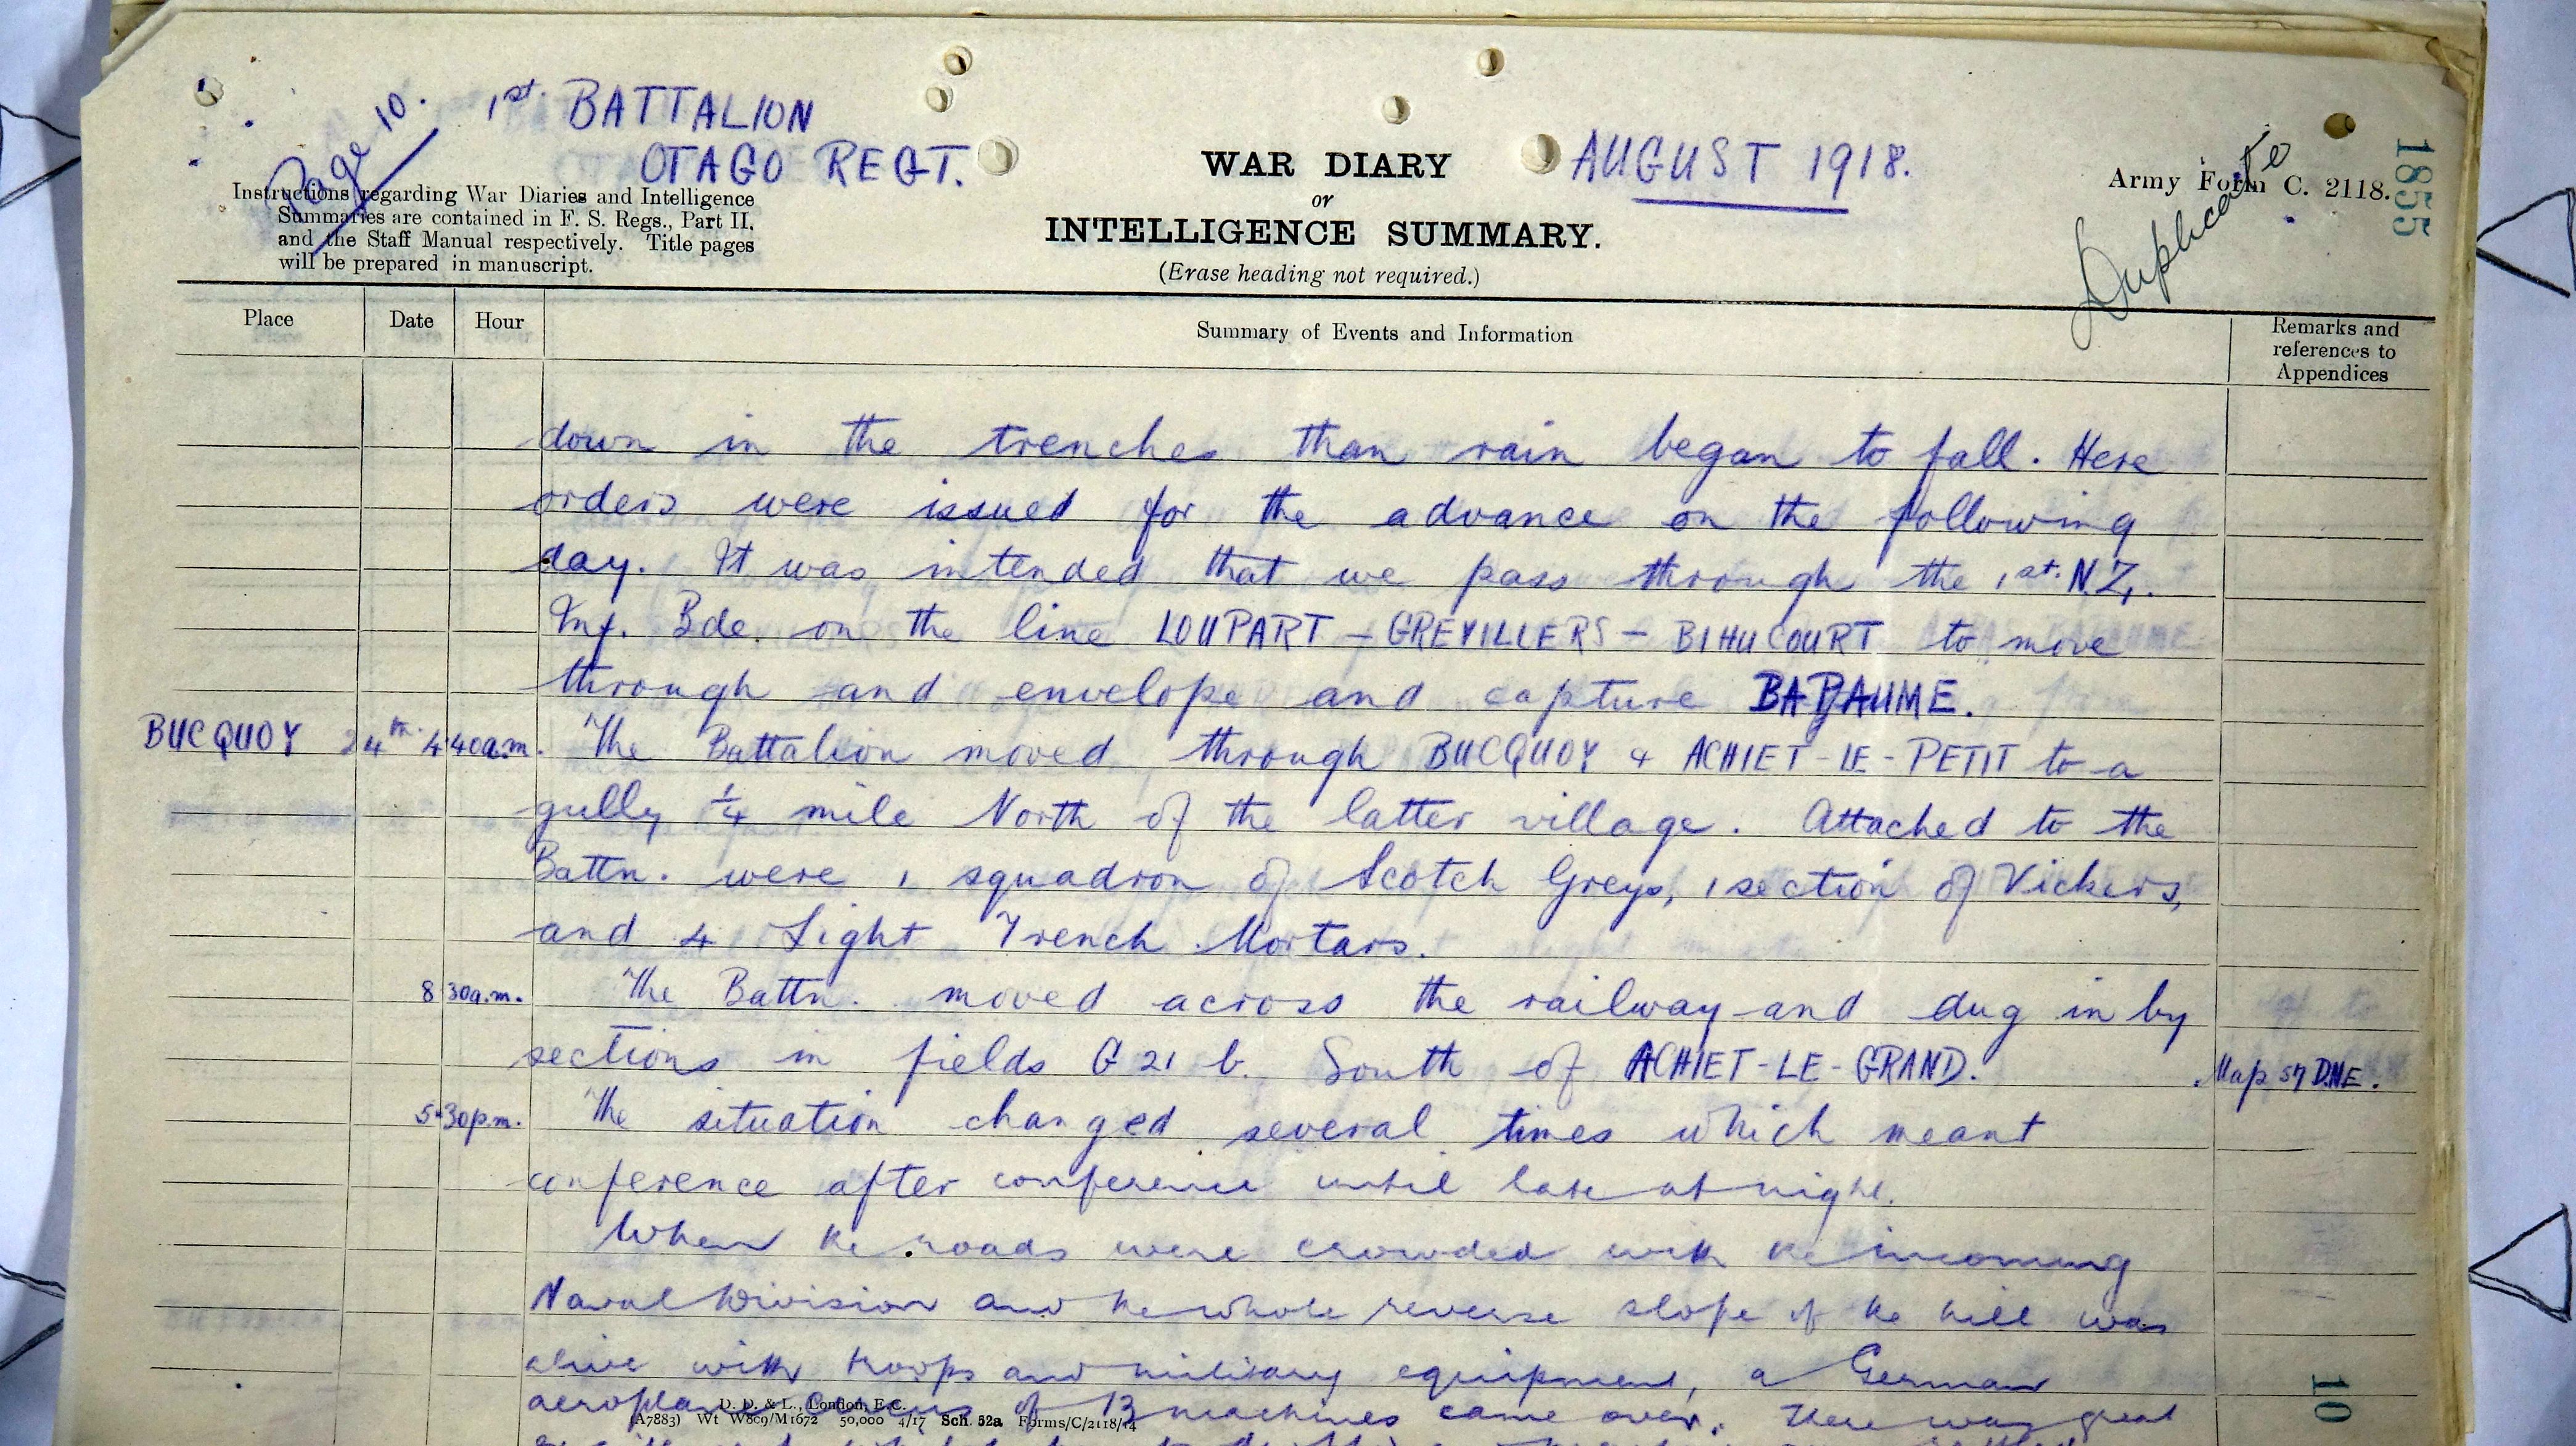 Page 10.
1st. BATTALION
OTAGO REGT.
AUGUST 1918.
Duplicate
1855
Instructions regarding War Diaries and Intelligence
Summaries are contained in F. S. Regs., Part II.
and the Staff Manual respectively. Title pages
will be prepared in manuscript.
WAR DIARY
or
INTELLIGENCE SUMMARY.
(Erase heading not required.)
Army Form C. 2118.
Place Date Hour Summary of Events and Information Remarks and
references to
Appendices
down in the trenches than rain began to fall. Here
orders were issued for the advance on the following
day. It was intended that we pass through the 1st. N.Z.
Inf. Bde. on the line LOUPART - GREVILLERS - BIHUCOURT to move
through and envelope and capture BAPAUME.
BUCQUOY 24th. 4 40a.m. The Battalion moved through BUCQUOY & ACHIET-LE-PETIT to a
gully 1/4 mile North of the latter village. Attached to the
Battn. were 1 squadron of Scotch Greys, 1 section of Vickers,
and 4 Light Trench Mortars.
8 30a.m. The Battn. moved across the railway and dug in by
sections in fields G 21 b. South of ACHIET-LE-GRAND. Map 57 D.N.E.
5.30p.m. The situation changed several times which meant
conference after conference until late at night.
When the roads were crowded with the incoming
Naval Division and the whole reverse slope of the hill was
alive with troops and military equipment, a German
aeroplane circus of 13 machines came over. There was great
D. D. & L., London, E.C.
(A7883) Wt W809/M1672 50,000 4/17 Sch. 52a Forms/C/2118/14
10